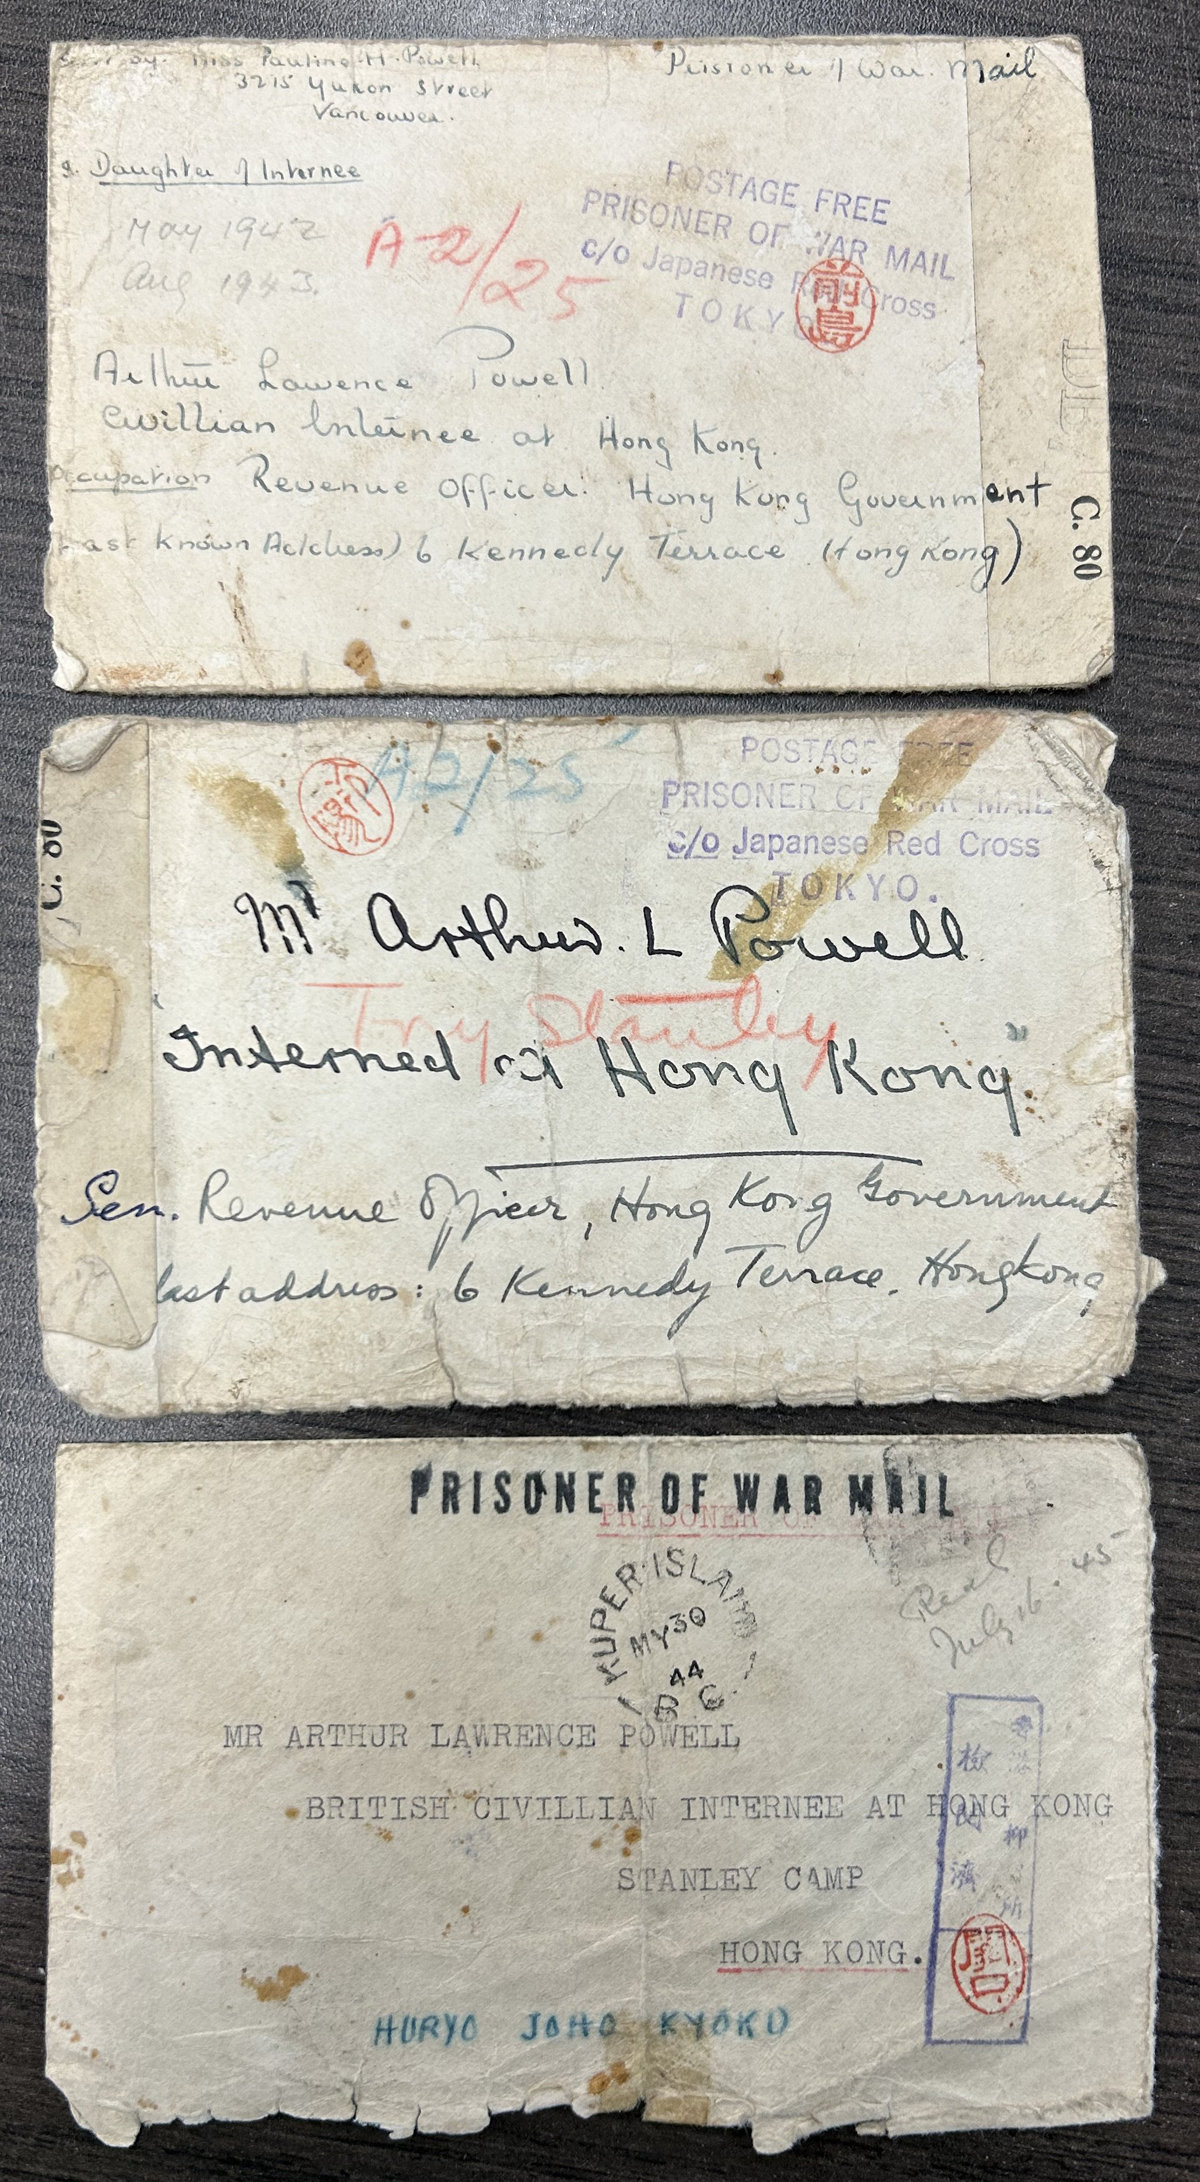 Sent by. Miss Pauline H. Powell
3215 Yukon Street
Vancouver.
Prisoner of War. Mail
Daughter of Internee
May 1942
Aug 1943.
A-2/25
POSTAGE FREE
PRISONER OF WAR MAIL
c/o Japanese Red Cross
TOKYO
前島
Arthur Lawence Powell
Civillian Internee at Hong Kong.
Occupation Revenue Officer. Hong Kong Government
Last Known Address) 6 Kennedy Terrace (Hong Kong)
DE
C. 80
A2/25
POSTAGE FREE
PRISONER OF WAR MAIL
c/o Japanese Red Cross
TOKYO.
C. 80
Mr Arthur. L Powell
Try Stanley
Interned at Hong Kong"
Sen. Revenue Officer, Hong Kong Government
last address: 6 Kennedy Terrace. Hongkong
PRISONER OF WAR MAIL
PRISONER OF
KUPER ISLAND
MY 30
44
B.C.
Recd
July 16. 45
MR ARTHUR LAWRENCE POWELL
BRITISH CIVILLIAN INTERNEE AT HONG KONG
STANLEY CAMP
HONG KONG.
HURYO JOHO KYOKU
香港
検閲済
関口